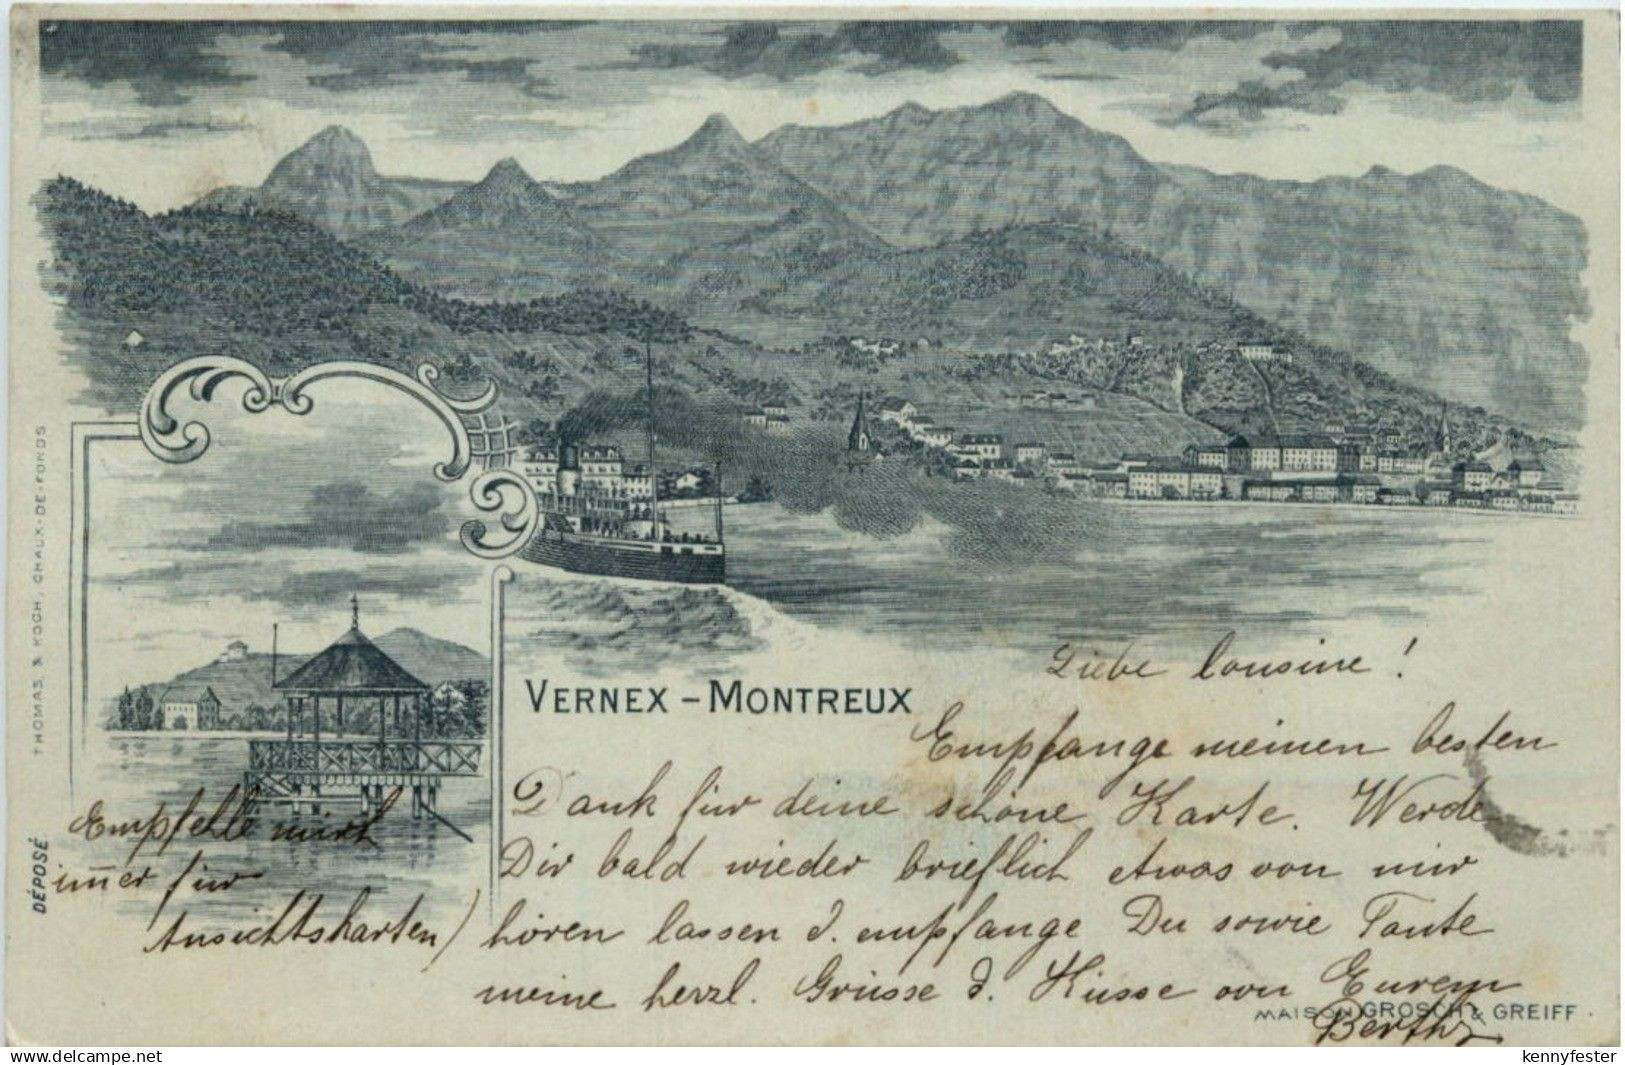 THOMAS & KOCH, CHAUX-DE-FONDS
DÉPOSÉ
VERNEX – MONTREUX
Liebe Cousine!
Empfange meinen besten
Dank für deine schöne Karte. Werde
Dir bald wieder brieflich etwas von mir
hören lassen d. empfange Du sowie Tante
meine herzl. Grüsse d. Küsse von Eurem
Empfelle mich
im̄er für
Ansichtskarten)
MAISON GROSCH & GREIFF.
kennyfester